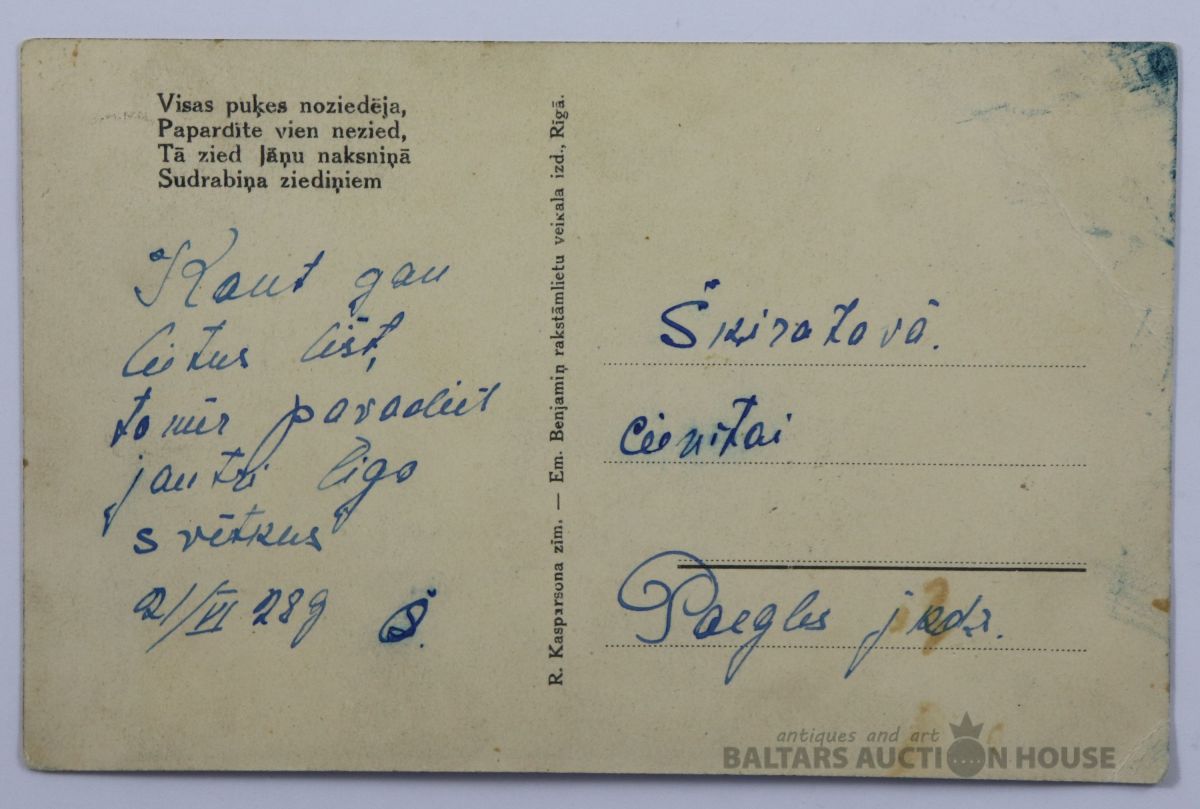 Visas puķes noziedēja,
Papardīte vien nezied,
Tā zied Jāņu naksniņā
Sudrabiņa ziediņiem
Kaut gan
lietus līst,
tomēr pavadiet
jautri līgo
svētkus
21/VI 28g Š.
R. Kaspersona zīm. — Em. Benjamiņ rakstāmlietu veikala izd., Rīgā.
Šķiratovā.
cienītai
Paegles jkdz.
antiques and art
BALTARS AUCTION HOUSE